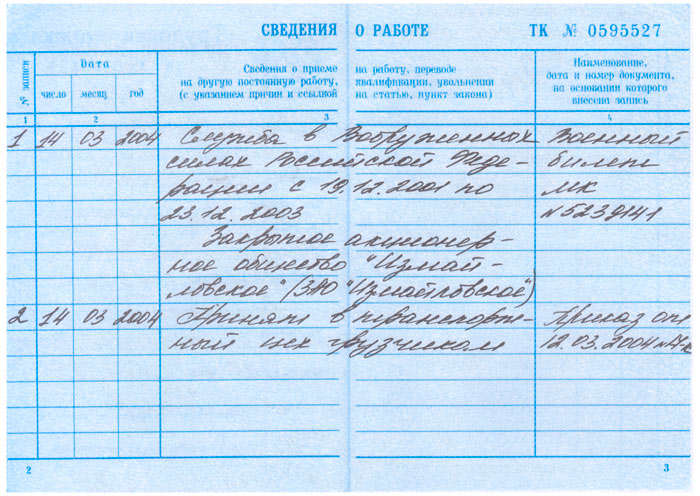 СВЕДЕНИЯ О РАБОТЕ ТК № 0595527
№ записи
Дата
Сведения о приеме на работу, переводе
на другую постоянную работу, квалификации, увольнении
(с указанием причин и ссылкой на статью, пункт закона)
Наименование,
дата и номер документа,
на основании которого
внесена запись
число месяц год
1 2 3 4
1 14 03 2004 Служба в Вооруженных Военный
силах Российской Феде- билет
рации с 19.12.2001 по МК
23.12.2003 №5239141
Закрытое акционер-
ное общество "Измай-
ловское" (ЗАО "Измайловское")
2 14 03 2004 Принят в транспорт- Приказ от
ный цех грузчиком 12.03.2004
2 3